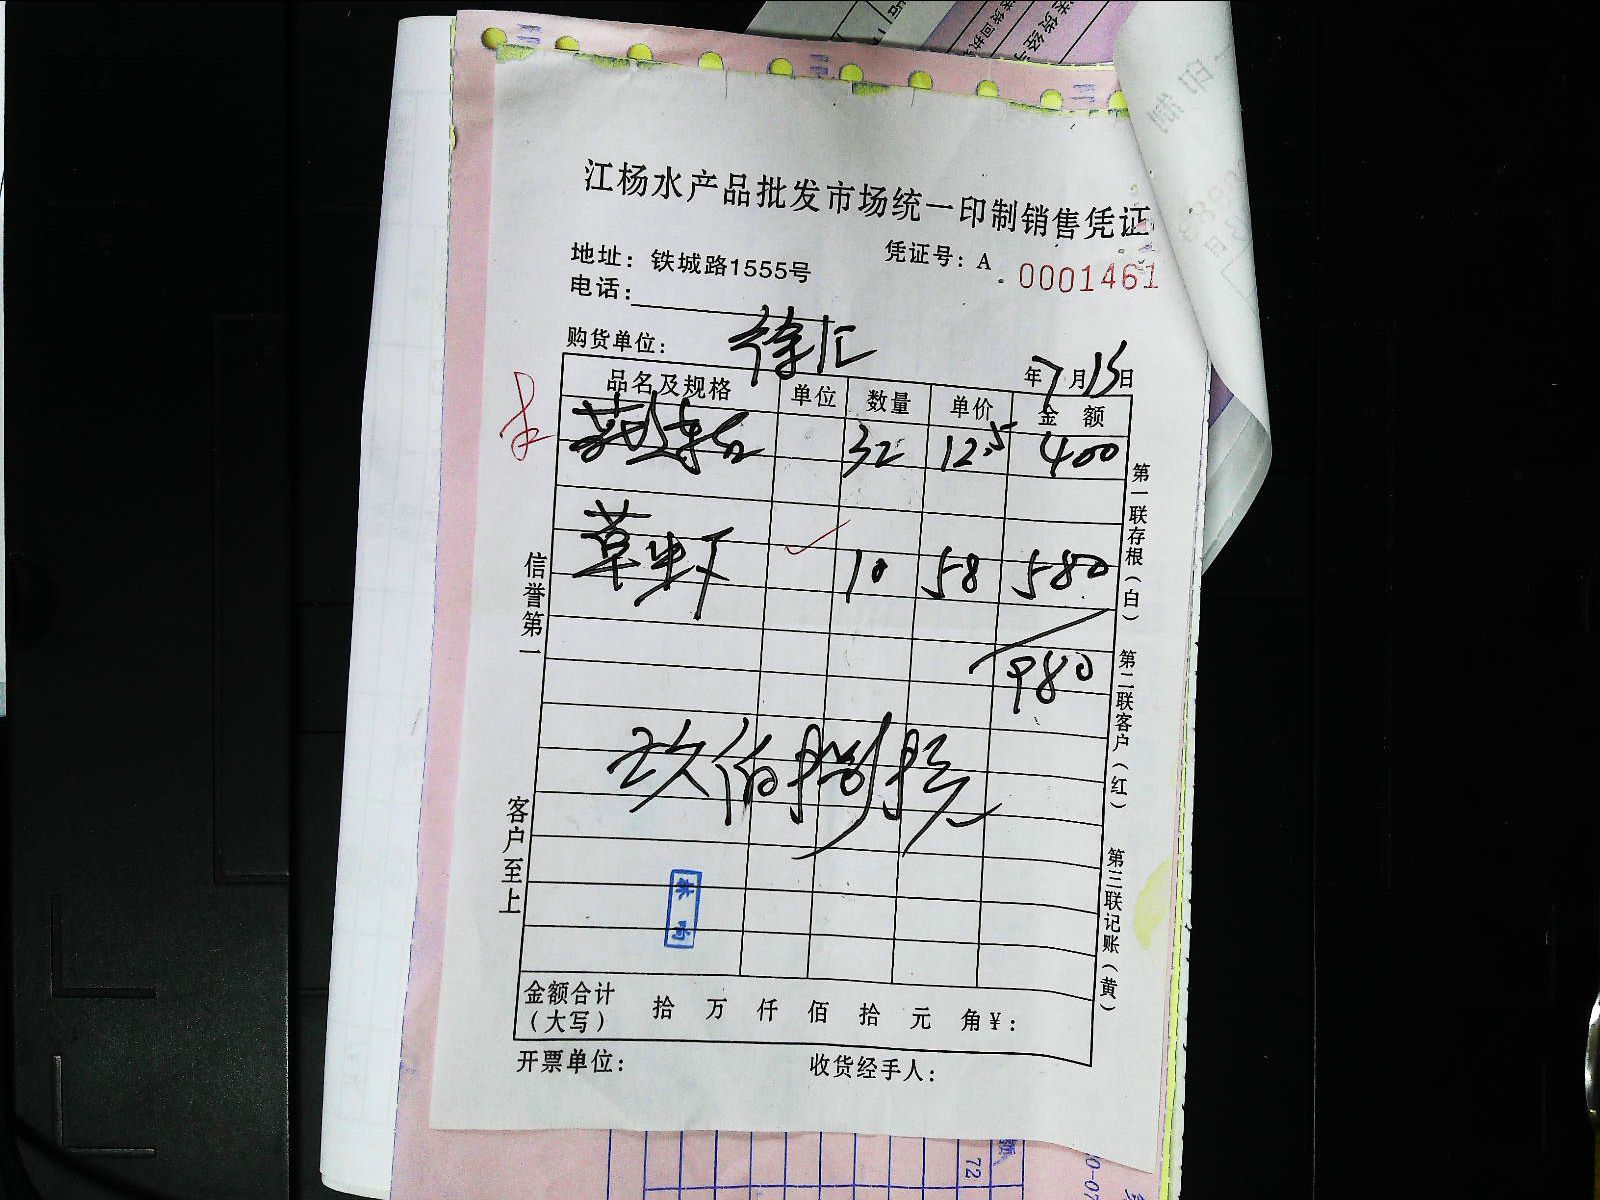 江杨水产品批发市场统一印制销售凭证
地址：铁城路1555号
凭证号：A
0001461
电话：
购货单位： 徐汇
年7月15日
品名及规格 单位 数量 单价 金额
32 12.5 400
草 10 58 580
980
玖佰捌拾元
信誉第一
客户至上
第一联存根（白）
第二联客户（红）
第三联记账（黄）
金额合计（大写） 拾 万 仟 佰 拾 元 角 ¥：
开票单位：
收货经手人：
72